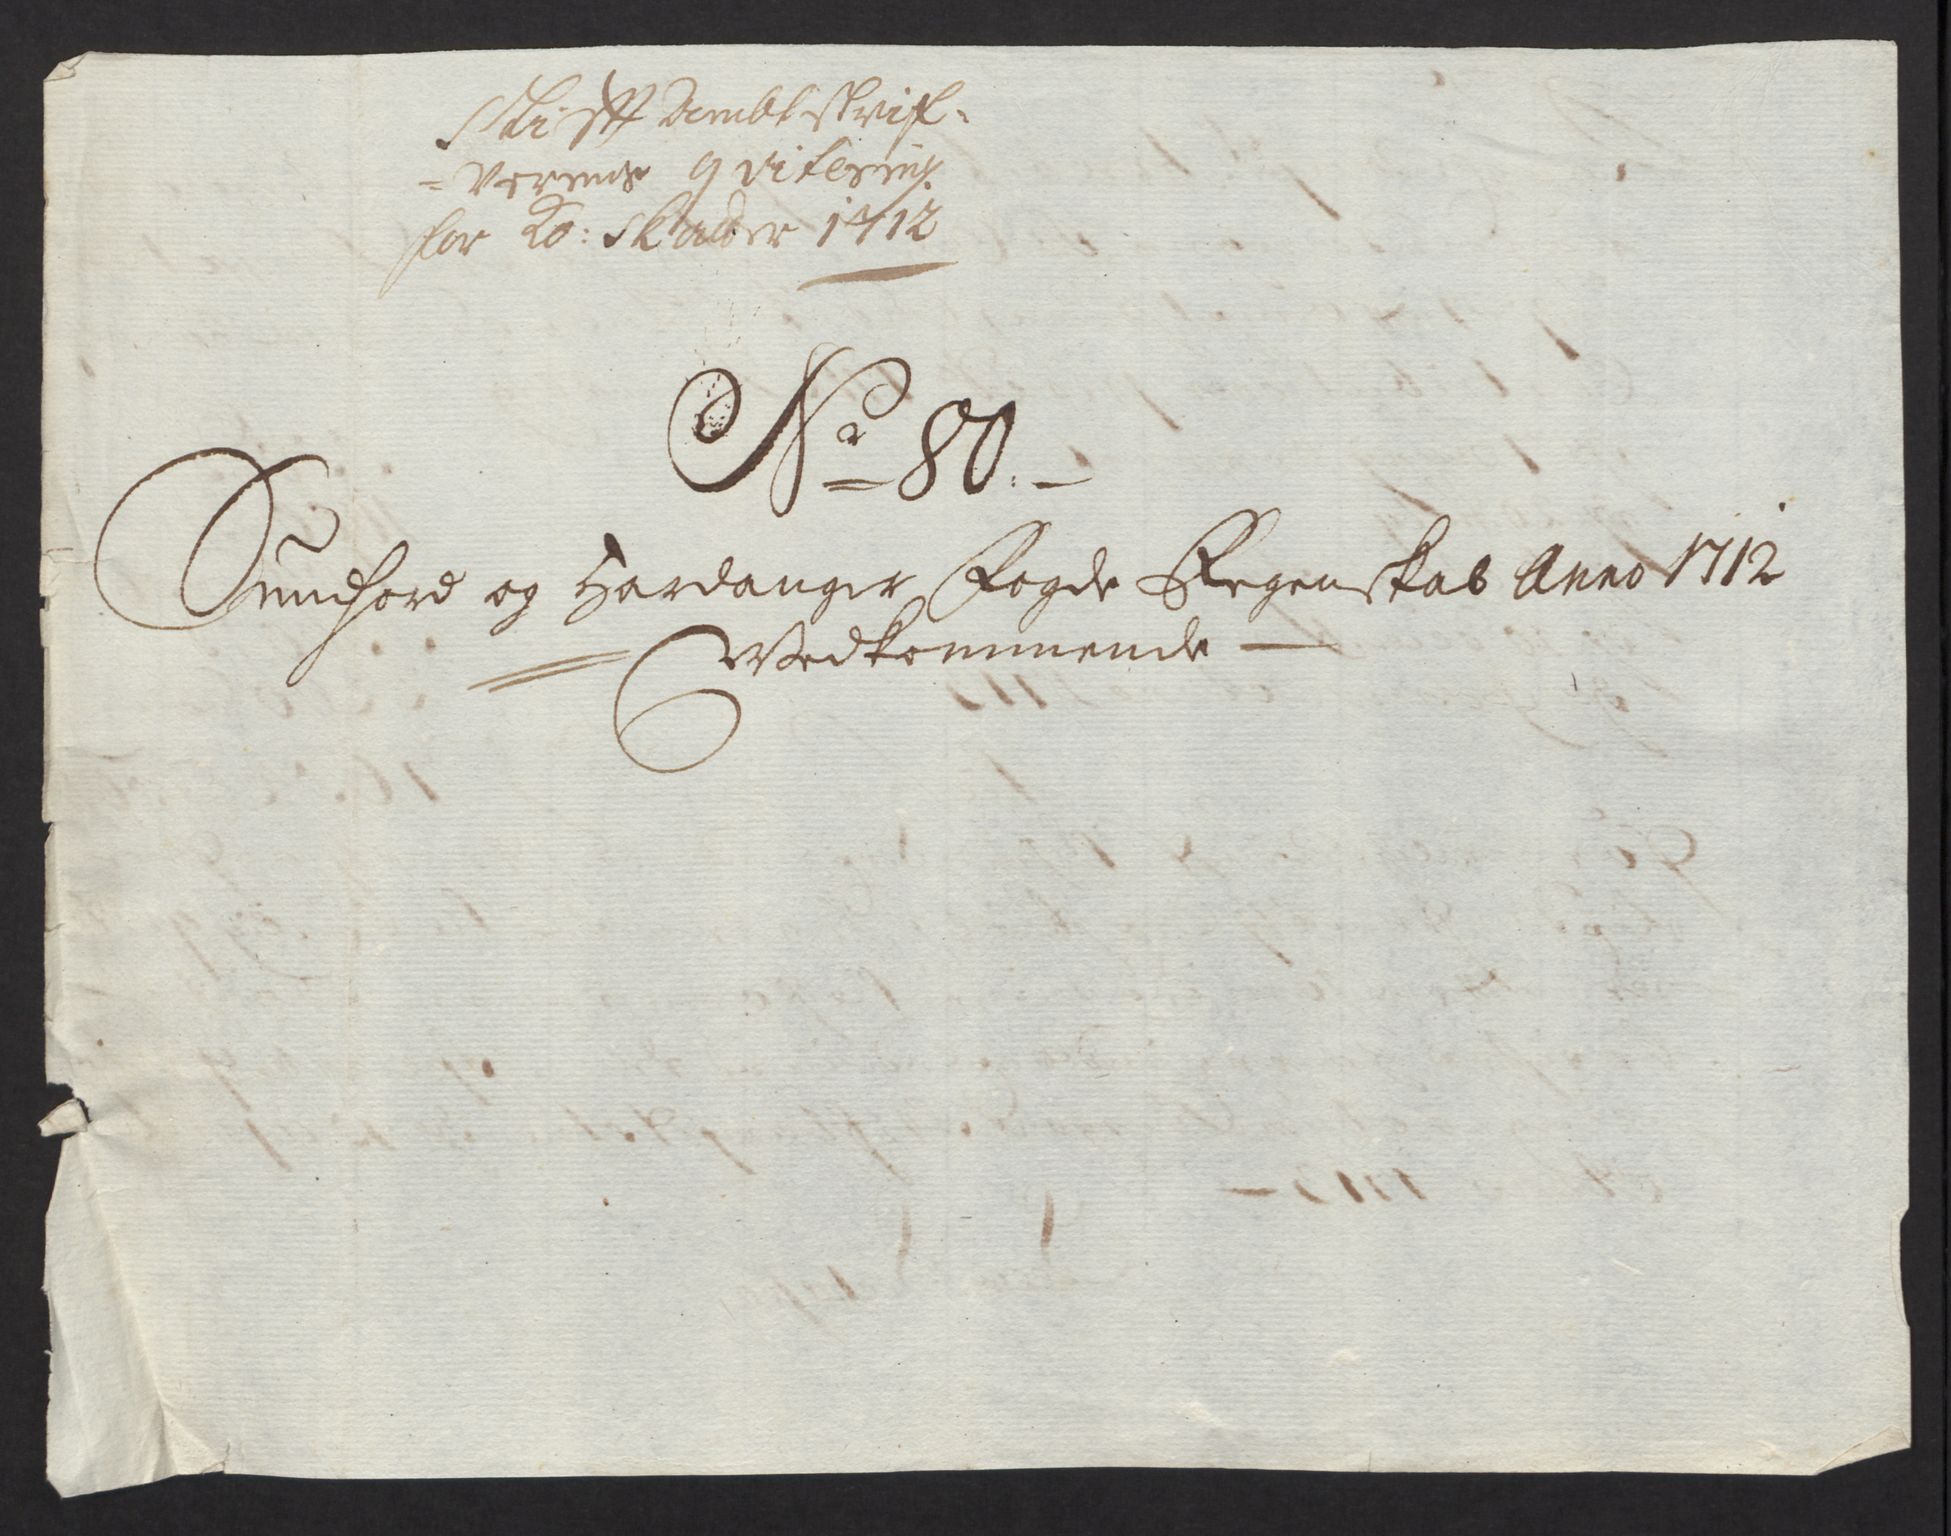 Stifft Ambtskrif-
-verens qvitering
for Ko: Skatter 1712
No 80.
Sundhord og Hardanger Fogde Regenskab Anno 1712
Vedkommende